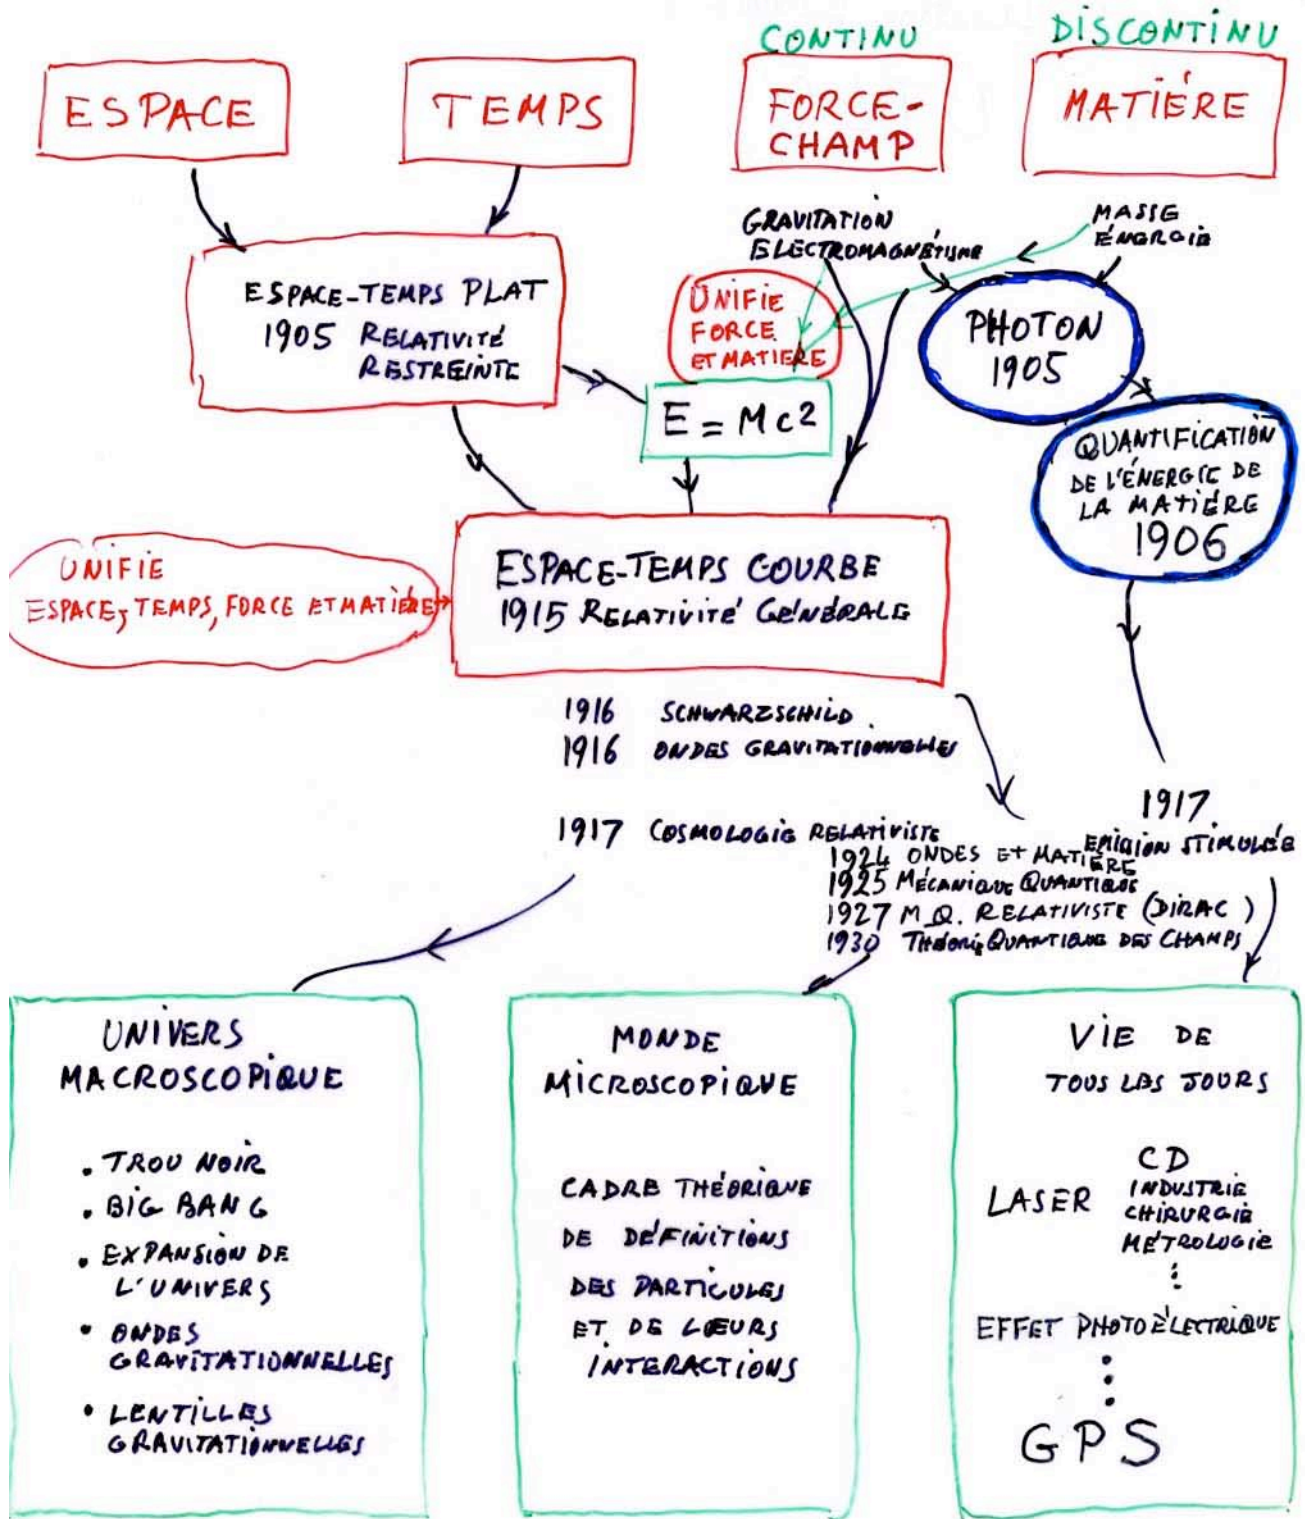 CONTINU
DISCONTINU
ESPACE
TEMPS
FORCE-
CHAMP
MATIÈRE
GRAVITATION
ELECTROMAGNÉTISME
MASSE
ÉNERGIE
ESPACE-TEMPS PLAT
1905 RELATIVITÉ
RESTREINTE
UNIFIE
FORCE
ET MATIERE
PHOTON
1905
E = Mc²
QUANTIFICATION
DE L'ÉNERGIE DE
LA MATIÉRE
1906
UNIFIE
ESPACE, TEMPS, FORCE ET MATIÉRE
ESPACE-TEMPS COURBE
1915 RELATIVITÉ GÉNÉRALE
1916 SCHWARZSCHILD
1916 ONDES GRAVITATIONNELLES
1917 COSMOLOGIE RELATIVISTE
1917
EMISION STIMULÉE
1924 ONDES ET MATIÈRE
1925 MÉCANIQUE QUANTIQUE
1927 M.Q. RELATIVISTE (DIRAC)
1930 THÉORIE QUANTIQUE DES CHAMPS
UNIVERS
MACROSCOPIQUE
• TROU NOIR
• BIG BANG
• EXPANSION DE
L'UNIVERS
• ONDES
GRAVITATIONNELLES
• LENTILLES
GRAVITATIONNELLES
MONDE
MICROSCOPIQUE
CADRE THÉORIQUE
DE DÉFINITIONS
DES PARTICULES
ET DE LEURS
INTERACTIONS
VIE DE
TOUS LES JOURS
LASER
CD
INDUSTRIE
CHIRURGIE
MÉTROLOGIE
EFFET PHOTOÉLECTRIQUE
GPS